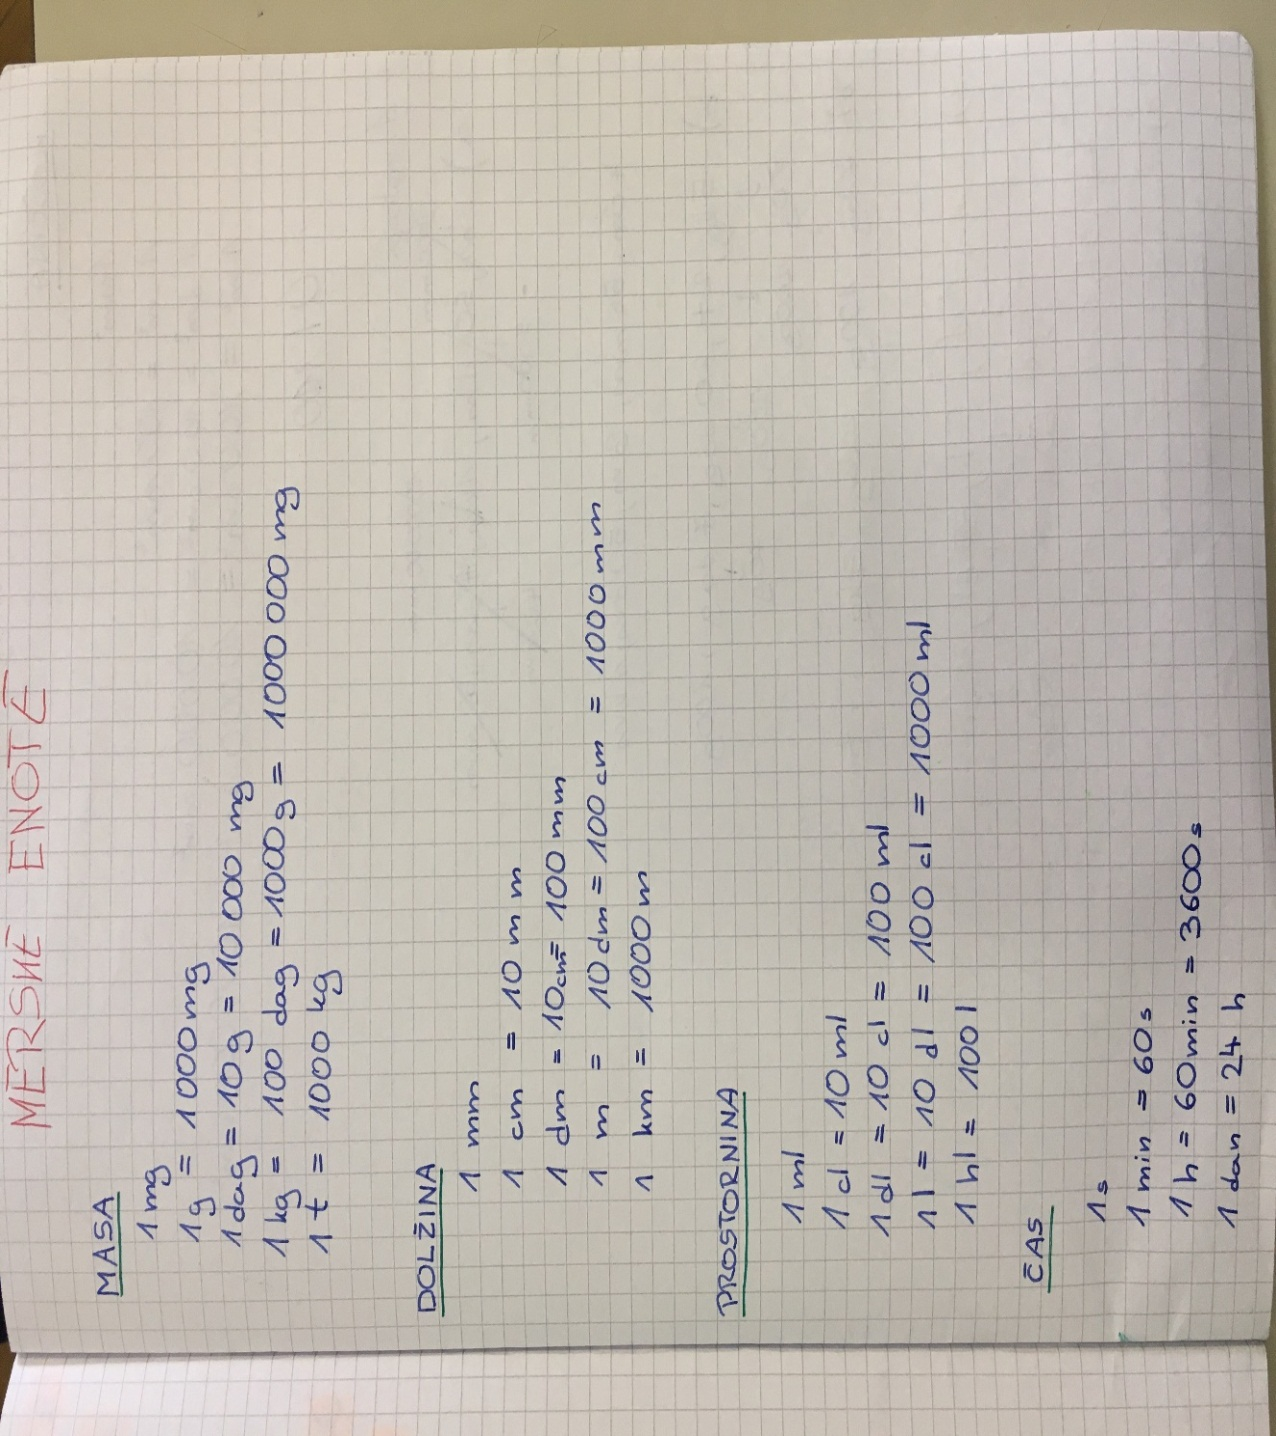 MERSKE ENOTE
MASA
1 mg
1g = 1000 mg
1 dag = 10 g = 10 000 mg
1 kg = 100 dag = 1000 g = 1000 000 mg
1 t = 1000 kg
DOLŽINA
1 mm
1 cm = 10 mm
1 dm = 10 cm = 100 mm
1 m = 10 dm = 100 cm = 1000 mm
1 km = 1000 m
PROSTORNINA
1 ml
1 cl = 10 ml
1 dl = 10 cl = 100 ml
1 l = 10 dl = 100 cl = 1000 ml
1 hl = 100 l
ČAS
1 s
1 min = 60 s
1 h = 60 min = 3600 s
1 dan = 24 h